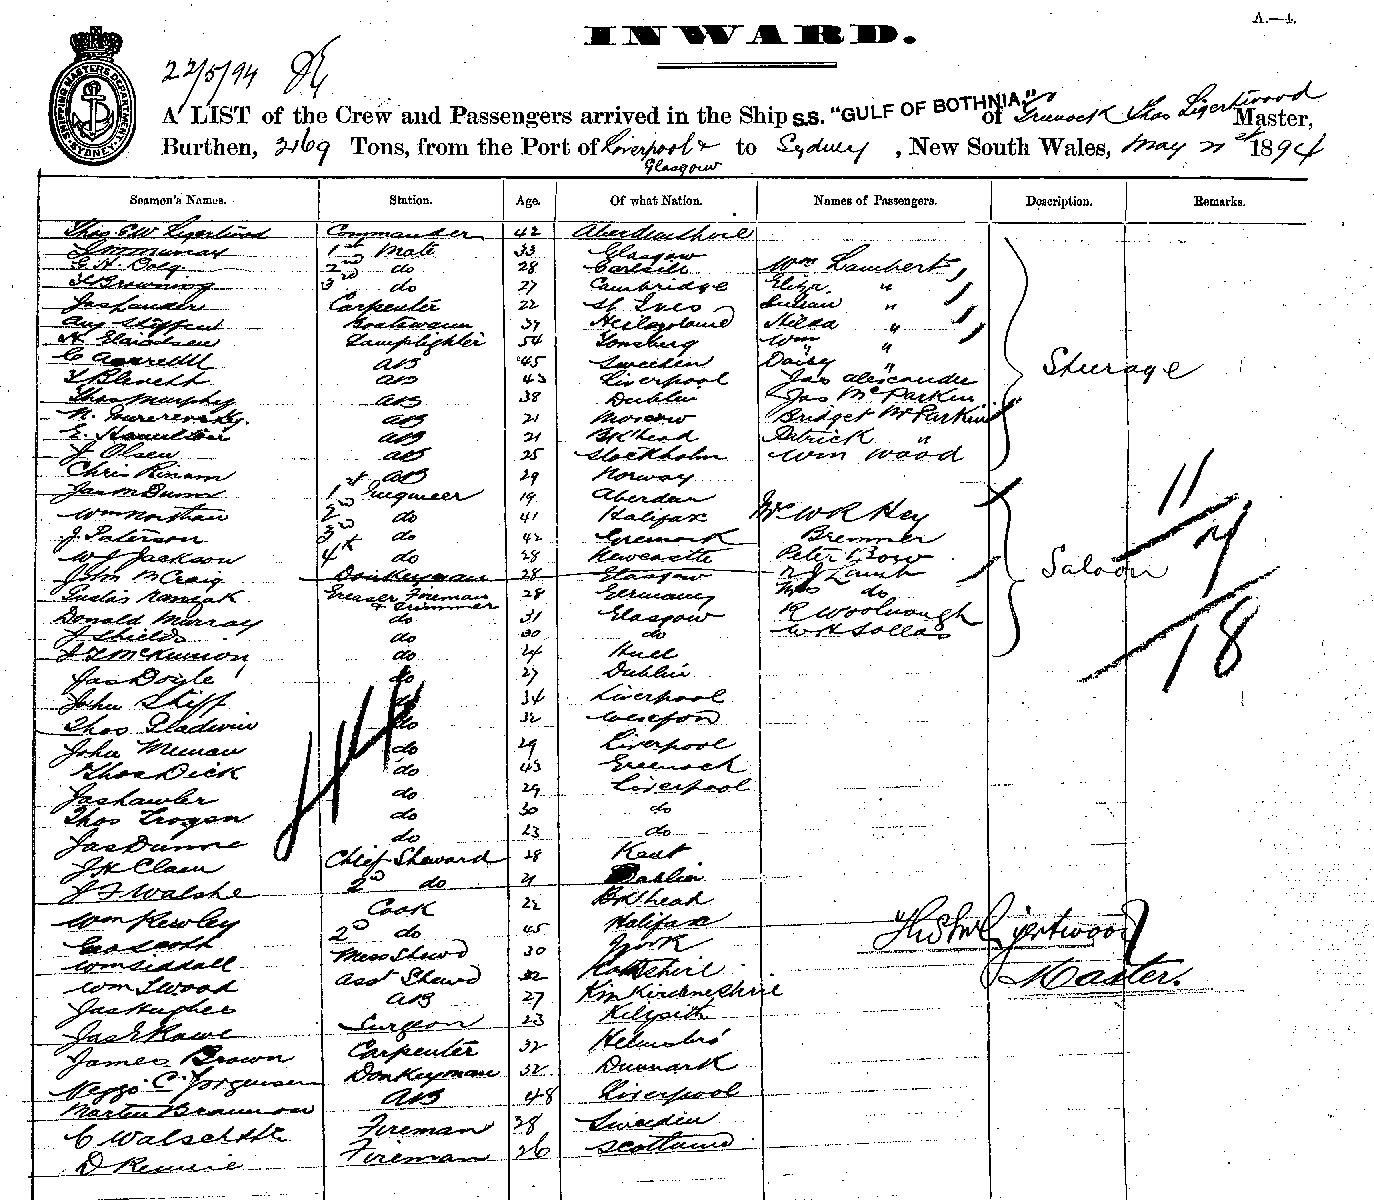 A.—4.
INWARD.
SHIPPING MASTERS DEPARTMENT SYDNEY
22/5/94
A LIST of the Crew and Passengers arrived in the Ship S.S. "GULF OF BOTHNIA," of Greenock Thos Ligertwood Master,
Burthen, 2169 Tons, from the Port of Liverpool & Glasgow to Sydney, New South Wales, May 21st 1894
Seamen's Names. Station. Age. Of what Nation. Names of Passengers. Description. Remarks.
Thos E W Ligertwood Commander 42 Aberdeenshire
1st Mate 33 Glasgow
2nd do 28 Carlisle Wm Lambert
3rd do 27 Cambridge Eliza "
Jas Lauder Carpenter 22 St Ives "
Boatswain 37 Heligoland Hilda "
Lamplighter 54 Tonsberg Wm "
AB 45 Sweden Daisy "
AB 43 Liverpool Jas Alexander
Thos Murphy AB 38 Dublin Jas McParkin
AB 21 Moscow Bridget McParkin
E. Hamilton AB 21 B'Khead Patrick "
J Olsen AB 25 Stockholm Wm Wood
Steerage
Chris AB 29 Norway
Jas M Dunn 1st Engineer 19 Aberdeen
2nd do 41 Halifax Mr W R Hey
J. Paterson 3rd do 42 Greenock Bremner
W J Jackson 4th do 28 Newcastle Peter Bow
John McCraig Donkeyman 28 Glasgow R J Lamb
Greaser Fireman & Trimmer 28 Germany Mrs do
Donald Murray do 31 Glasgow R Woolnough
J Shields do 30 do W H Sollas
Saloon
11
7
18
J F McKinnon do 24 Hull
Jas Doyle do 27 Dublin
John Stiff do 34 Liverpool
Thos Gladwin do 32 Wexford
John Meenan do 29 Liverpool
Thos Dick do 43 Greenock
Jas Lawler do 29 Liverpool
Thos Grogan do 30 do
Jas Dunne do 23 do
J H Clare Chief Steward 28 Kent
J F Walshe 2nd do 21 Dublin
Wm Kewley Cook 22 B'Khead
Geo Scott 2nd do 45 Halifax
Wm Siddall Mess Stewd 30 York
Wm S Wood Asst Stewd 32
Jas Hughes AB 27 Kin Kirdineshire
Jas E Rowe Surgeon 23 Kilsyth
James Brown Carpenter 32
C. Jorgensen Donkeyman 32 Denmark
Martin AB 48 Liverpool
C Fireman 38 Sweden
D Rennie Fireman 26 Scotland
Ligertwood
Master.